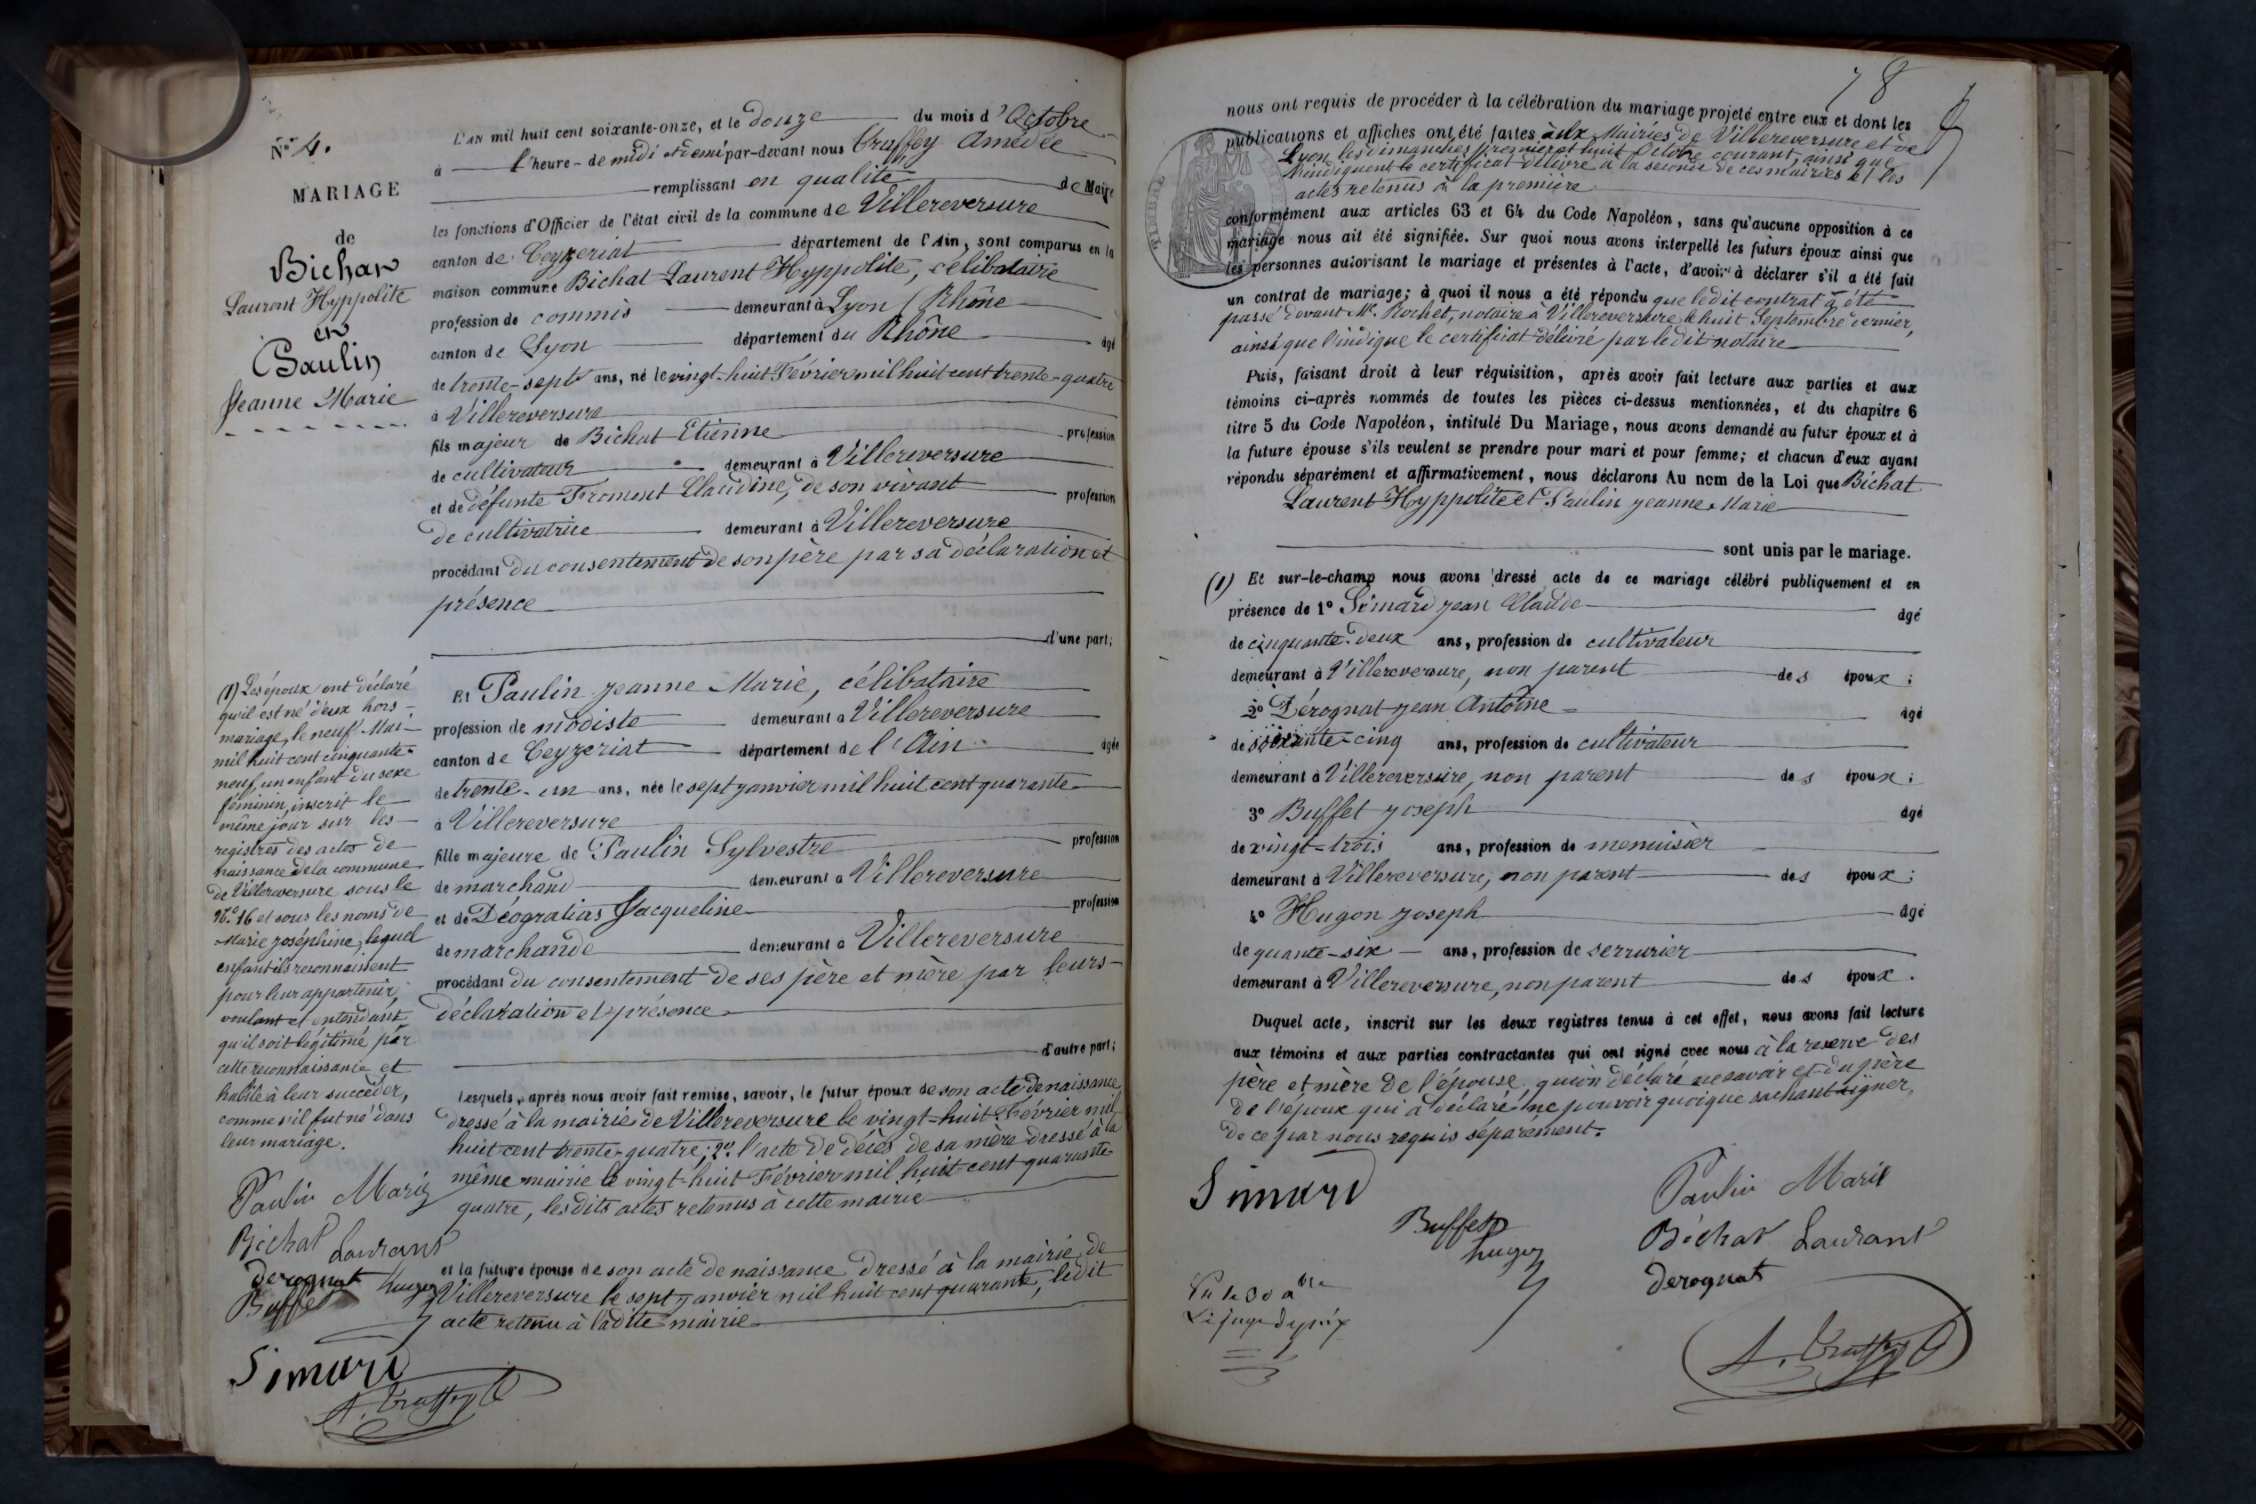 N° 4.
MARIAGE
de
Bichat
Laurent Hyppolite
et
Paulin
Jeanne Marie
L'AN mil huit cent soixante-onze, et le douze du mois d'Octobre
à l'heure de midi et demi par-devant nous Truffey Amédée
remplissant en qualité de Maire
les fonctions d'Officier de l'état civil de la commune de Villereversure
canton de Ceyzeriat département de l'Ain, sont comparus en la
maison commune Bichat Laurent Hyppolite, célibataire
profession de commis demeurant à Lyon (Rhône
canton de Lyon département du Rhône âgé
de trente-sept ans, né le vingt-huit Février mil huit cent trente-quatre
à Villereversure
fils majeur de Bichat Etienne profession
de cultivateur demeurant à Villereversure
et de défunte Froment Claudine, de son vivant profession
de cultivatrice demeurant à Villereversure
procédant du consentement de son père par sa déclaration et
présence
d'une part;
Et Paulin Jeanne Marie, célibataire
profession de modiste demeurant à Villereversure
canton de Ceyzeriat département de l'Ain âgée
de trente-un ans, née le sept janvier mil huit cent quarante
à Villereversure
fille majeure de Paulin Sylvestre profession
de marchand demeurant à Villereversure
et de Déogratias Jacqueline profession
de marchande demeurant à Villereversure
procédant du consentement de ses père et mère par leurs
déclaration et présence
d'autre part;
Lesquels, après nous avoir fait remise, savoir, le futur époux de son acte de naissance
dressé à la mairie de Villereversure le vingt-huit Février mil
huit cent trente-quatre; 2° l'acte de décès de sa mère dressé à la
même mairie le vingt-huit Février mil huit cent quarante
quatre, lesdits actes retenus à cette mairie
et la future épouse de son acte de naissance dressé à la mairie de
Villereversure le sept janvier mil huit cent quarante, ledit
acte retenu à ladite mairie
(1) Les époux ont déclaré
qu'il est né d'eux hors
mariage, le neuf Mai
mil huit cent cinquante
neuf, un enfant du sexe
féminin, inscrit le
même jour sur les
registres des actes de
naissance de la commune
de Villereversure sous le
N° 16 et sous les noms de
Marie Joséphine, lequel
enfant ils reconnaissent
pour leur appartenir,
voulant et entendant
qu'il soit légitimé par
cette reconnaissance et
habile à leur succéder,
comme s'il fut né dans
leur mariage.
Paulin Marie
Bichat Laurant
Derognat hugon
Buffet
Simard
A. Truffey
78
nous ont requis de procéder à la célébration du mariage projeté entre eux et dont les
publications et affiches ont été faites aux Mairies de Villereversure et de
Lyon les dimanches premier et huit Octobre courant, ainsi que
l'indiquent le certificat délivré à la seconde de ces mairies et les
actes retenus à la première
conformément aux articles 63 et 64 du Code Napoléon, sans qu'aucune opposition à ce
mariage nous ait été signifiée. Sur quoi nous avons interpellé les futurs époux ainsi que
les personnes autorisant le mariage et présentes à l'acte, d'avoir à déclarer s'il a été fait
un contrat de mariage; à quoi il nous a été répondu que ledit contrat a été
passé devant Me Rochet, notaire à Villereversure le huit Septembre dernier,
ainsi que l'indique le certificat délivré par ledit notaire
Puis, faisant droit à leur réquisition, après avoir fait lecture aux parties et aux
témoins ci-après nommés de toutes les pièces ci-dessus mentionnées, et du chapitre 6
titre 5 du Code Napoléon, intitulé Du Mariage, nous avons demandé au futur époux et à
la future épouse s'ils veulent se prendre pour mari et pour femme; et chacun d'eux ayant
répondu séparément et affirmativement, nous déclarons Au nom de la Loi que Bichat
Laurent Hyppolite et Paulin Jeanne Marie
sont unis par le mariage.
(1) Et sur-le-champ nous avons dressé acte de ce mariage célébré publiquement et en
présence de 1° Simard Jean Claude âgé
de cinquante-deux ans, profession de cultivateur
demeurant à Villereversure, non parent des époux;
2° Dérognat Jean Antoine âgé
de soixante-cinq ans, profession de cultivateur
demeurant à Villereversure, non parent des époux;
3° Buffet Joseph âgé
de vingt-trois ans, profession de menuisier
demeurant à Villereversure, non parent des époux;
4° Hugon Joseph âgé
de quante-six ans, profession de serrurier
demeurant à Villereversure, non parent des époux.
Duquel acte, inscrit sur les deux registres tenus à cet effet, nous avons fait lecture
aux témoins et aux parties contractantes qui ont signé avec nous à la reserve des
père et mère de l'épouse qui on déclaré ne savoir et du père
de l'époux qui a déclaré ne pouvoir quoique sachant signer,
de ce par nous requis séparément.
Simard
Paulin Marie
Buffet
hugon
Bichat Laurant
Derognat
Le juge de paix
A. Truffey
TIMBRE